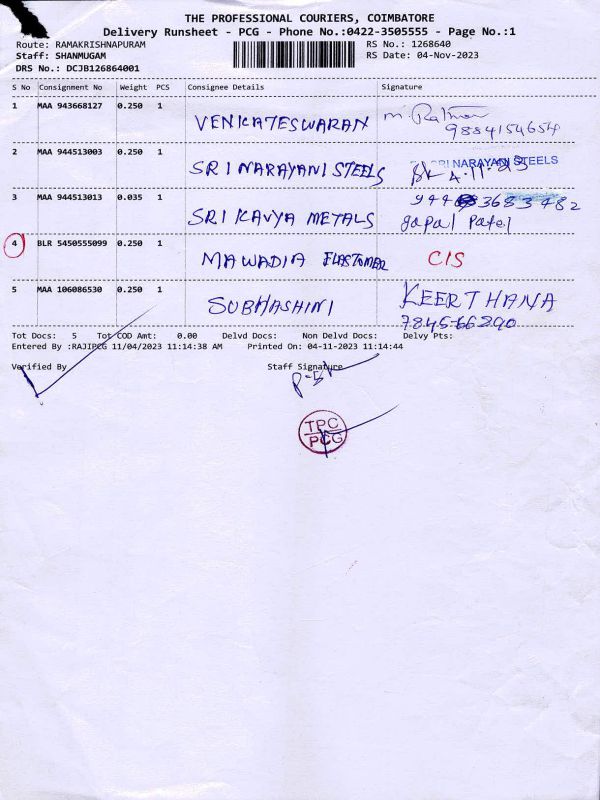 THE PROFESSIONAL COURIERS, COIMBATORE
Delivery Runsheet - PCG - Phone No.:0422-3505555 - Page No.:1
Route: RAMAKRISHNAPURAM RS No.: 1268640
Staff: SHANMUGAM RS Date: 04-Nov-2023
DRS No.: DCJB126864001
S No Consignment No Weight PCS Consignee Details Signature
1 MAA 943668127 0.250 1 VENKATESWARAN
9884154654
2 MAA 944513003 0.250 1 SRI NARAYANI STEELS SRI NARAYANI STEELS
4.11.23
3 MAA 944513013 0.035 1 SRI KAVYA METALS
gopal Patel
4 BLR 5450555099 0.250 1 MAWADIA ELASTOMER C/S
5 MAA 106086530 0.250 1 SUBHASHINI KEERTHANA
784566290
Tot Docs: 5 Tot COD Amt: 0.00 Delvd Docs: Non Delvd Docs: Delvy Pts:
Entered By :RAJIPCG 11/04/2023 11:14:38 AM Printed On: 04-11-2023 11:14:44
Verified By Staff Signature
TPC
PCG